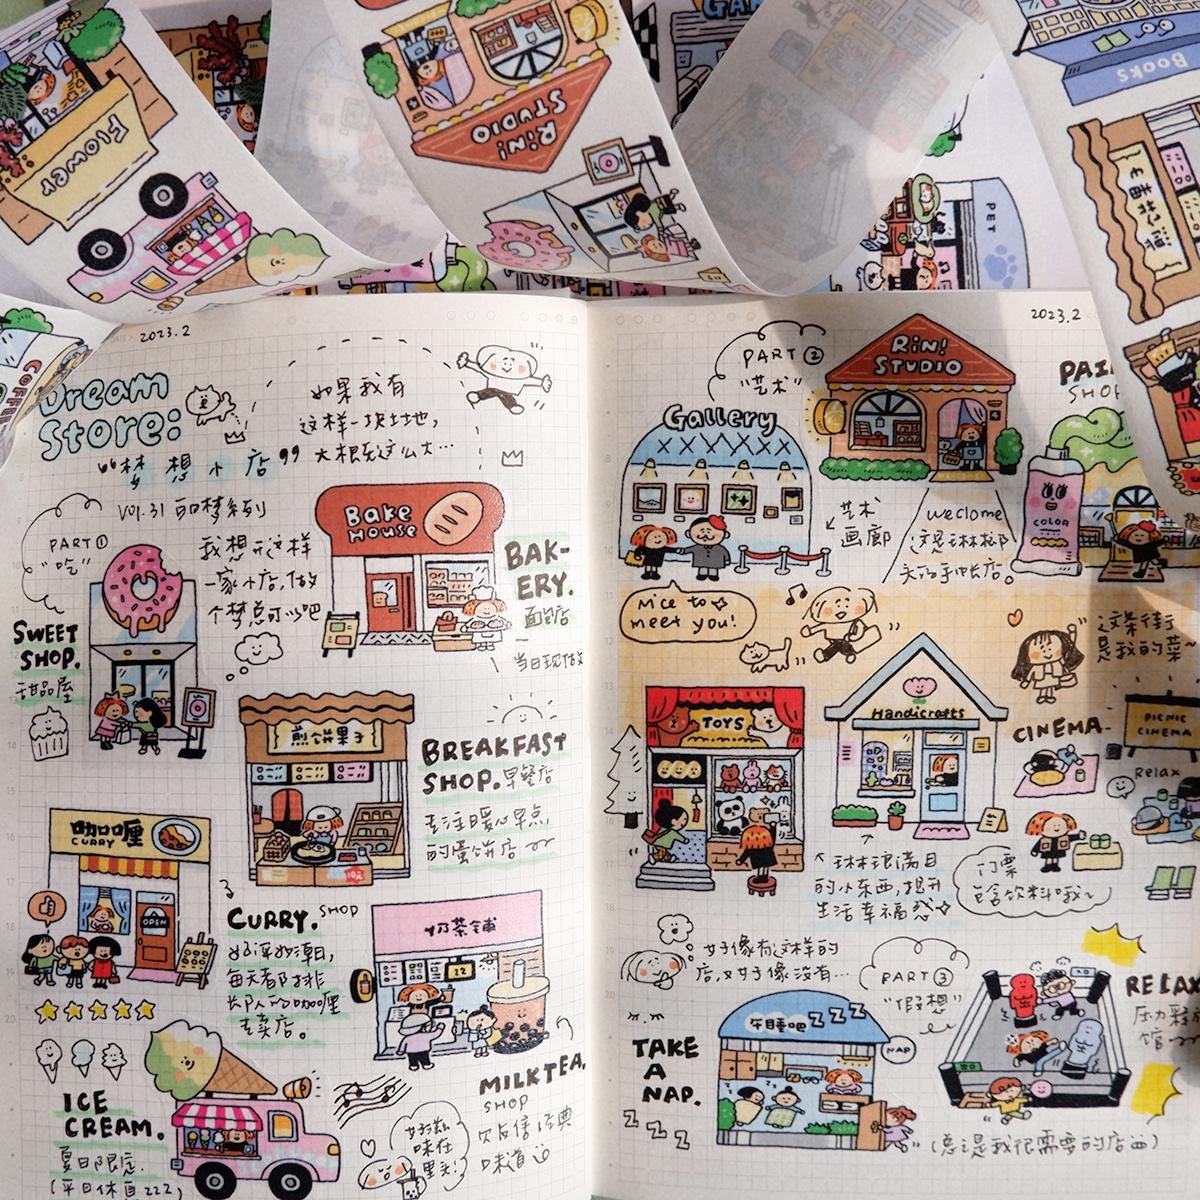 Flower
Rin!
STUDIO
PET
Books
COFFEE
2023.2
Dream
Store:
“梦想小店”
如果我有
这样一块土地，
大概是这么大…
PART①
“吃”
我想开这样
一家小店,做
个梦总可以吧
Bake
House
BAK-
ERY.
面包店
当日现做
SWEET
SHOP.
甜品屋
煎饼果子
BREAKFAST
SHOP. 早餐店
专注暖心早点
的蛋饼店
10元
咖喱
CURRY
OPEN
CURRY. SHOP
每天都排
长队的咖喱
专卖店。
奶茶铺
MILKTEA.
SHOP
味道
ICE
CREAM.
夏日限定.
(平日休息zzz)
味在
里头!
2023.2
PART②
“艺术”
Rin!
STUDIO
WELCOME
SHOP
Gallery
艺术
画廊
welcome
COLOR
Nice to
meet you!
这条街
是我的菜~
TOYS
Handicrafts
CINEMA
PICNIC
CINEMA
Relax
琳琅满目
的小东西,提升
生活幸福感
门票
含饮料哦~
好像有这样的
店,又好像没有…
PART③
“假想”
午睡吧 ZZZ
NAP
TAKE
A
NAP.
ZZZZ
RELAX
压力释放
馆
(总之是我很需要的店)